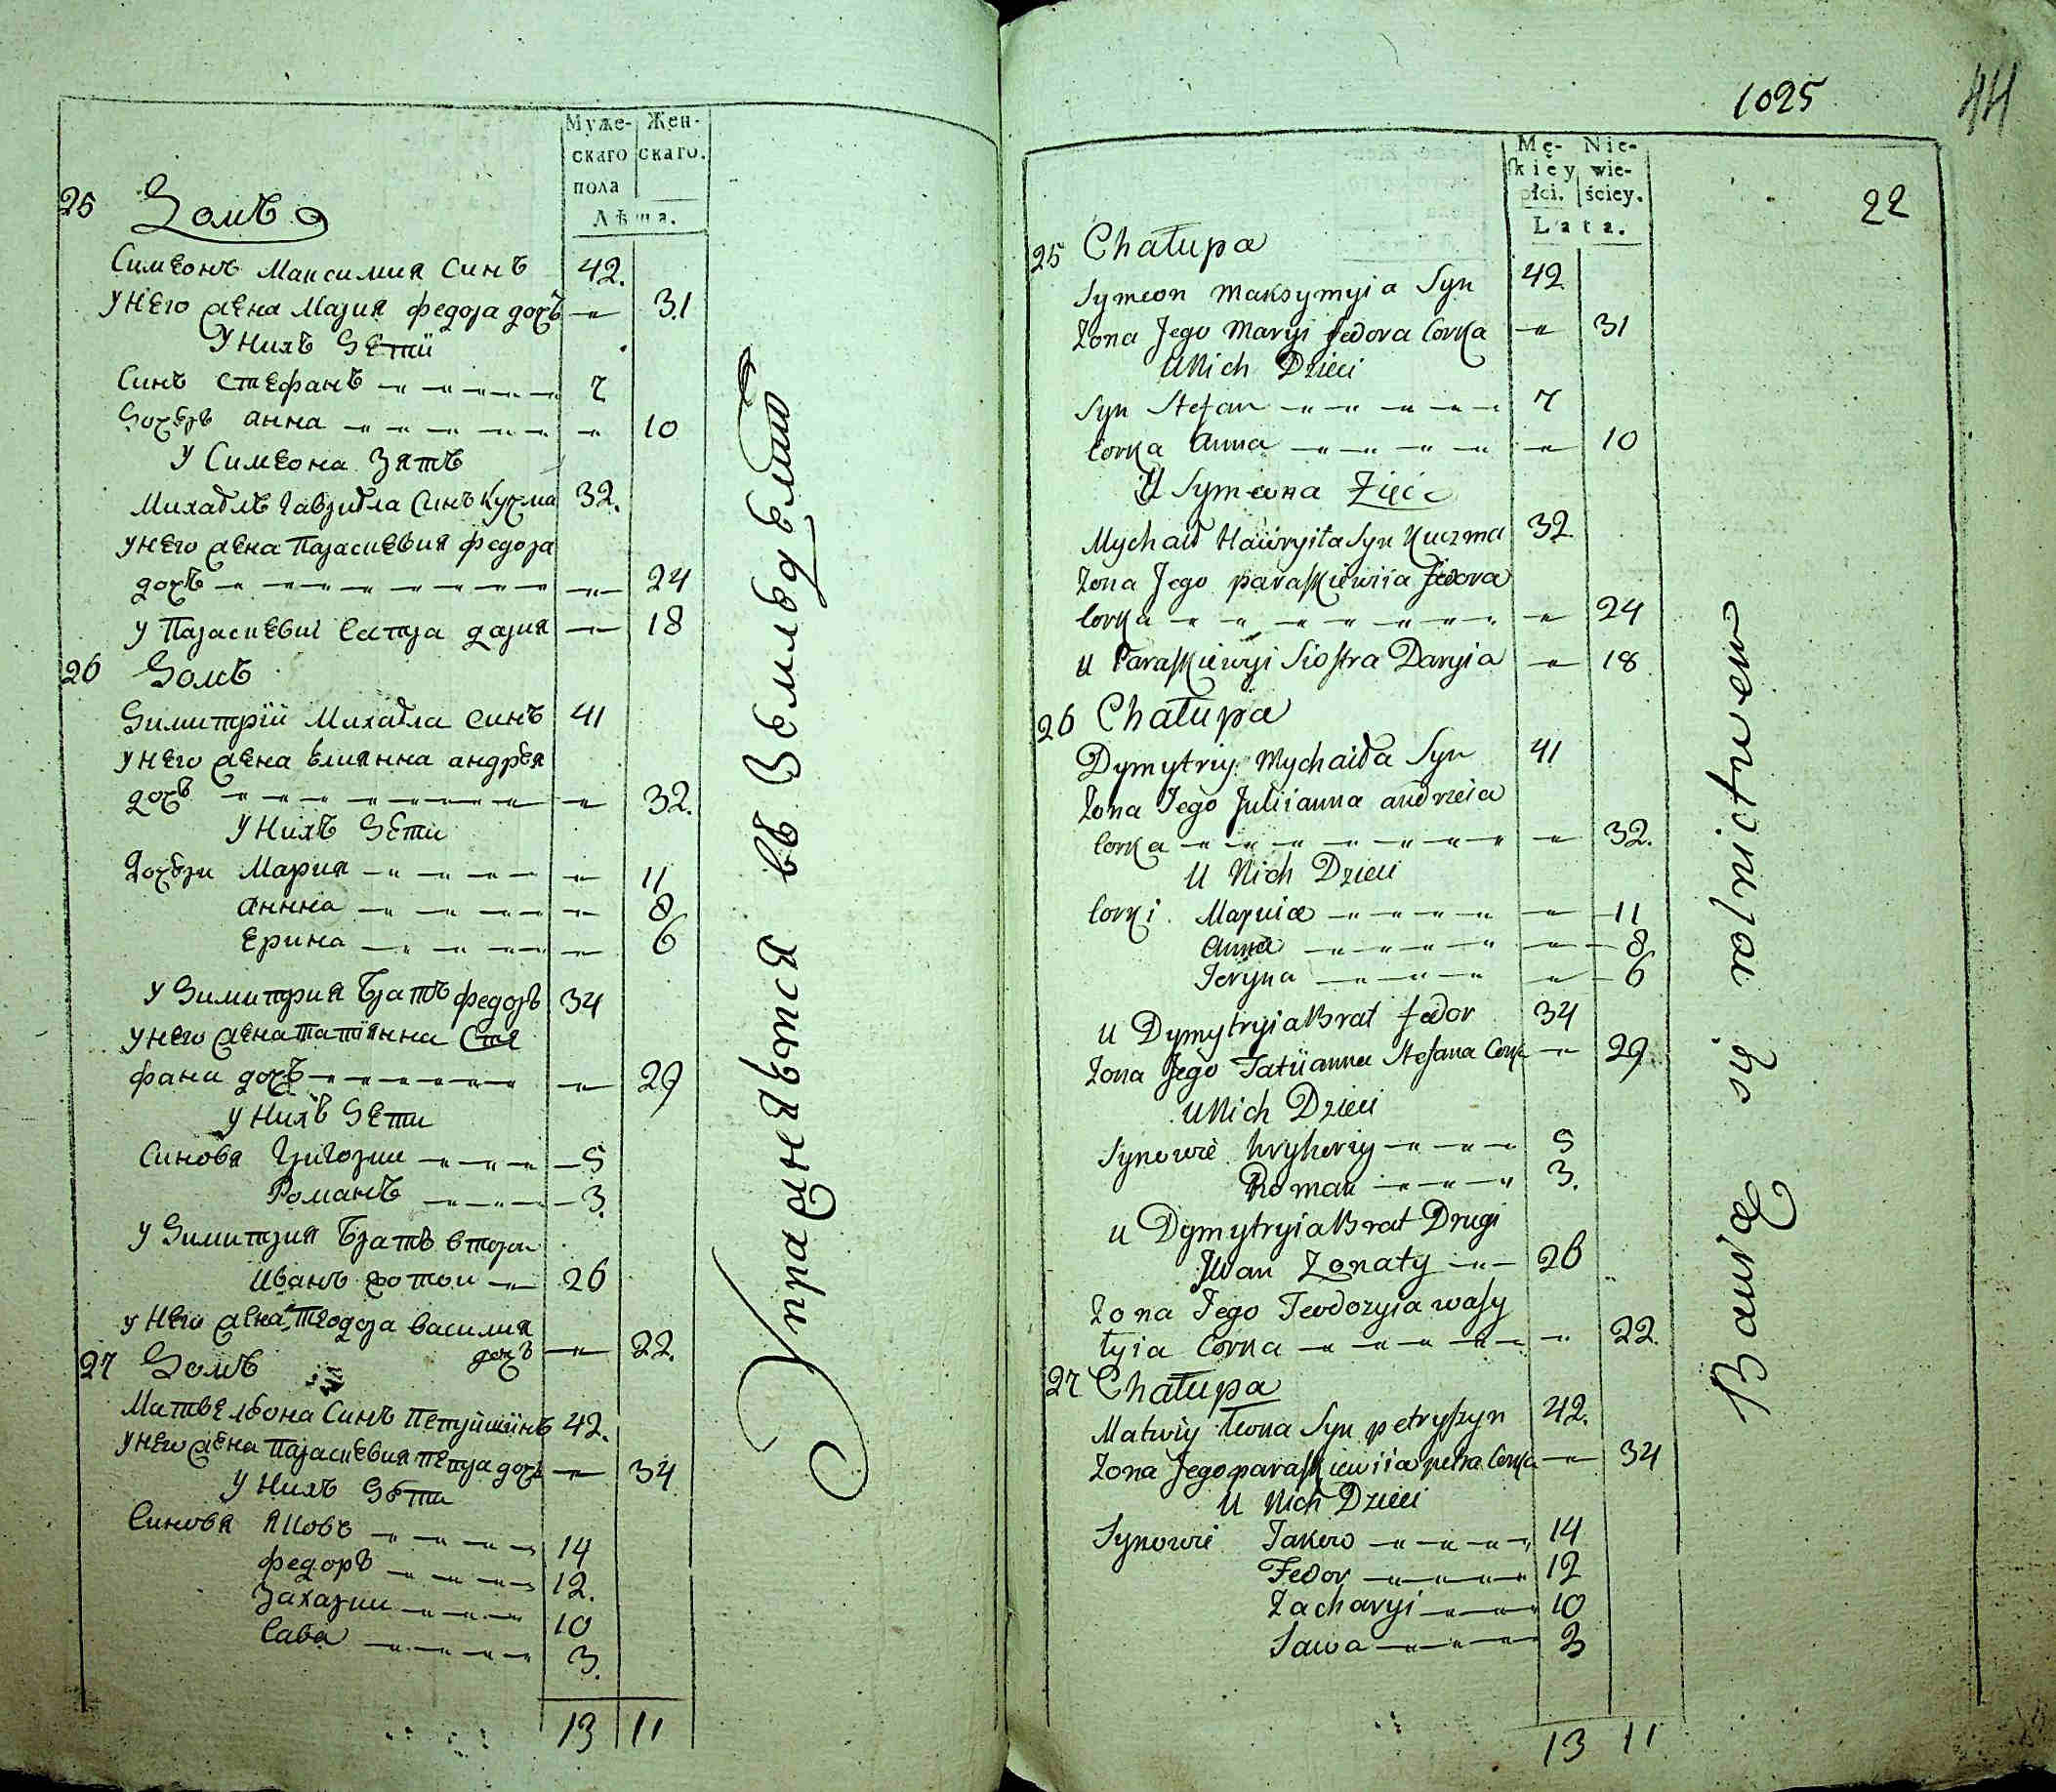 Муже- Жен-
скаго скаго.
пола
Лѣта.
25 Домъ
Симеонъ Максимия Синъ 42.
У него жена Мария федора дочъ -"- 31
У нихъ Дети
Синъ Стефанъ -"-"-"-"-"- 7
Дочеръ анна -"-"-"-"-"- -"- 10
У Симеона Зятъ
Михаѣлъ Гавриѣла Синъ Кучма 32.
У него жена Параскевия федора
дочъ -"-"-"-"-"-"-"- -"- 24
У Параскевиї Сестра дария -"- 18
26 Домъ
Димитрїй Михаѣла синъ 41
У него жена Елианна андрея
дочъ -"-"-"-"-"-"-"- -"- 32.
У нихъ Дети
Дочери Мария -"-"-"-"- -"- 11
аннна -"-"-"-"- -"- 8
Ерина -"-"-"-"- -"- 6
У Димитрия Братъ федоръ 34
У него жена Татїянна Сте
фана дочъ -"-"-"-"-"-"- -"- 29
У нихъ Дети
Синовя Григории -"-"-"- 5
Романъ -"-"-"- 3.
У Димитрия Братъ втори
Иванъ -"- 26
У него жена Теодора Василия
дочъ -"- 22.
27 Домъ
Матве Леона Синъ Петришинъ 42.
У него жена Параскевия петра дочъ -"- 34
У нихъ Дѣти
Синовя Яковъ -"-"-"-"- 14
федоръ -"-"-"-"- 12.
Захарии -"-"-"- 10
Сава -"-"-"-"- 3.
13 11
Упражняются въ Земледелии
1025
44
22
Mę- Nie-
skiey wie-
płci. ściey.
Lata.
25 Chałupa
Symeon Maksymyia Syn 42
Zona Jego Maryi fedora Corka -"- 31
U Nich Dzieci
Syn Stefan -"-"-"-"-"- 7
Corka Anna -"-"-"-"- -"- 10
U Symeona Zięć
Mychaił Hawryiła Syn Kuczma 32.
Zona Jego paraskiewiia fedora
Corka -"-"-"-"-"-"-"- -"- 24
U Paraskiewyi Siostra Daryia -"- 18
26 Chałupa
Dymytriy Mychaiła Syn 41
Zona Jego Juliianna andrzeia
Corka -"-"-"-"-"-"-"- -"- 32.
U Nich Dzieci
Corki Maryia -"-"-"-"- -"- 11
Anna -"-"-"-"- -"- 8
Jeryna -"-"-"- -"- 6
U Dymytryia Brat fedor 34
Zona Jego Tatiianna Stefana Corka -"- 29.
U Nich Dzieci
Synowie hryhoriy -"-"-"- 5
Roman -"-"-"- 3.
U Dymytryia Brat Drugi
Jwan Zonaty -"- 26
Zona Jego Teodozyia wasy
lyia Corka -"-"-"-"- -"- 22.
27 Chałupa
Matwiy Leona Syn petryszyn 42.
Zona Jego paraskiewiia petra Corka -"- 34
U Nich Dzieci
Synowie Jakow -"-"-"-"- 14
Fedor -"-"-"-"- 12
Zacharyi -"-"-"- 10
Sawa -"-"-"-"- 3
13 11
Bawią się rolnictwem